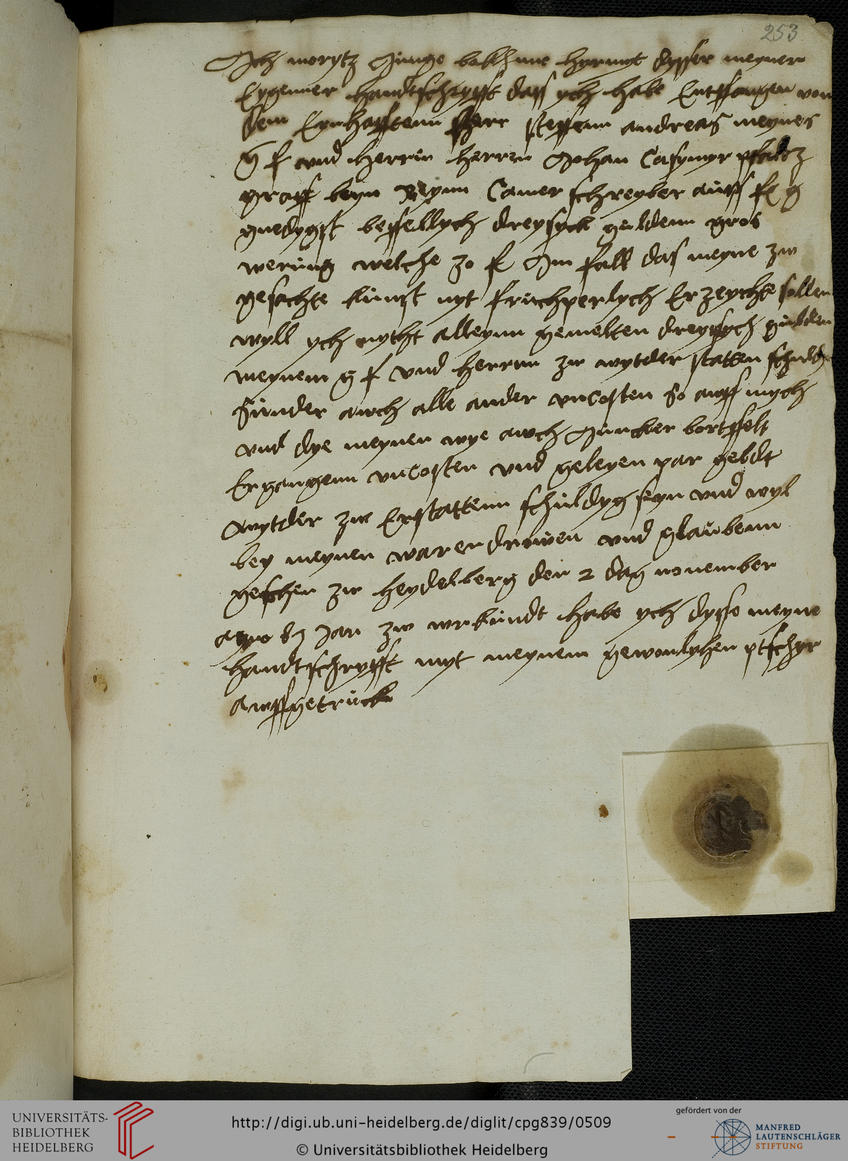 253
Ich morytz Junge bekhenne hyrmyt dysser meyner
Eygenner handtschryfft dass ych habe Entpfangen von
dem Ernhafftenn Herr steffenn andreas meynes
g f vnd herrn herren Johan Casymyr pfaltz
graff beyn Reynn Camerschreyber auff f g
gnedygst beffellych dreysyck gulden gros
werung welche 30 f Im fall das meyne zw
gesachte kunst nyt fruchperlych Erzeychte sollen
wyll ych nytht alleynn gemelten dreyssych gulden
meynem g f vnd herrnn zw wytder statten schuld
Sunder auch alle ander vncosten so auff mych
vnd dye meynen wye auch Juncker
Ergangenn vncosten vnd geleyen par geldt
wytder zw Erstattenn schuldyg seyn vnd wyl
bey meynen waren drwen vnd glaubenn
geschen zw heydelberg den 2 dag november
Jar zw vrkundt habe ych dysse meyne
handtschryfft myt meynem gewonlychen ptschyr
auffgetruck
UNIVERSITÄTS-
BIBLIOTHEK
HEIDELBERG
http://digi.ub.uni-heidelberg.de/diglit/cpg839/0509
© Universitätsbibliothek Heidelberg
gefördert von der
MANFRED
LAUTENSCHLÄGER
STIFTUNG